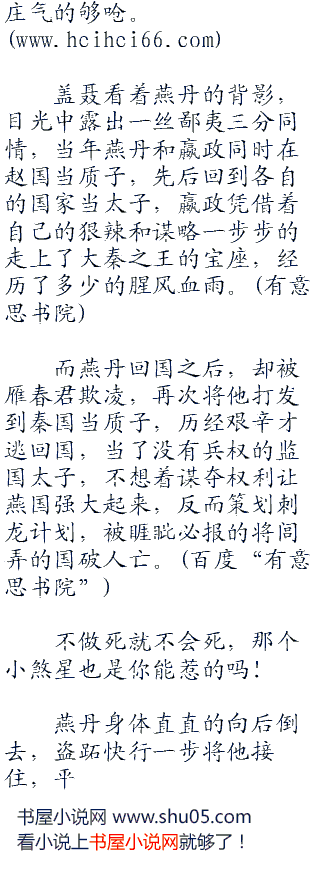 庄气的够呛。
(www.hcihci66.com)
盖聂看着燕丹的背影，
目光中露出一丝鄙夷三分同
情，当年燕丹和嬴政同时在
赵国当质子，先后回到各自
的国家当太子，嬴政凭借着
自己的狠辣和谋略一步步的
走上了大秦之王的宝座，经
历了多少的腥风血雨。(有意
思书院)
而燕丹回国之后，却被
雁春君欺凌，再次将他打发
到秦国当质子，历经艰辛才
逃回国，当了没有兵权的监
国太子，不想着谋夺权利让
燕国强大起来，反而策划刺
龙计划，被睚眦必报的将闾
弄的国破人亡。(百度“有意
思书院”)
不做死就不会死，那个
小煞星也是你能惹的吗！
燕丹身体直直的向后倒
去，盗跖快行一步将他接
住，平
书屋小说网 www.shu05.com
看小说上书屋小说网就够了！